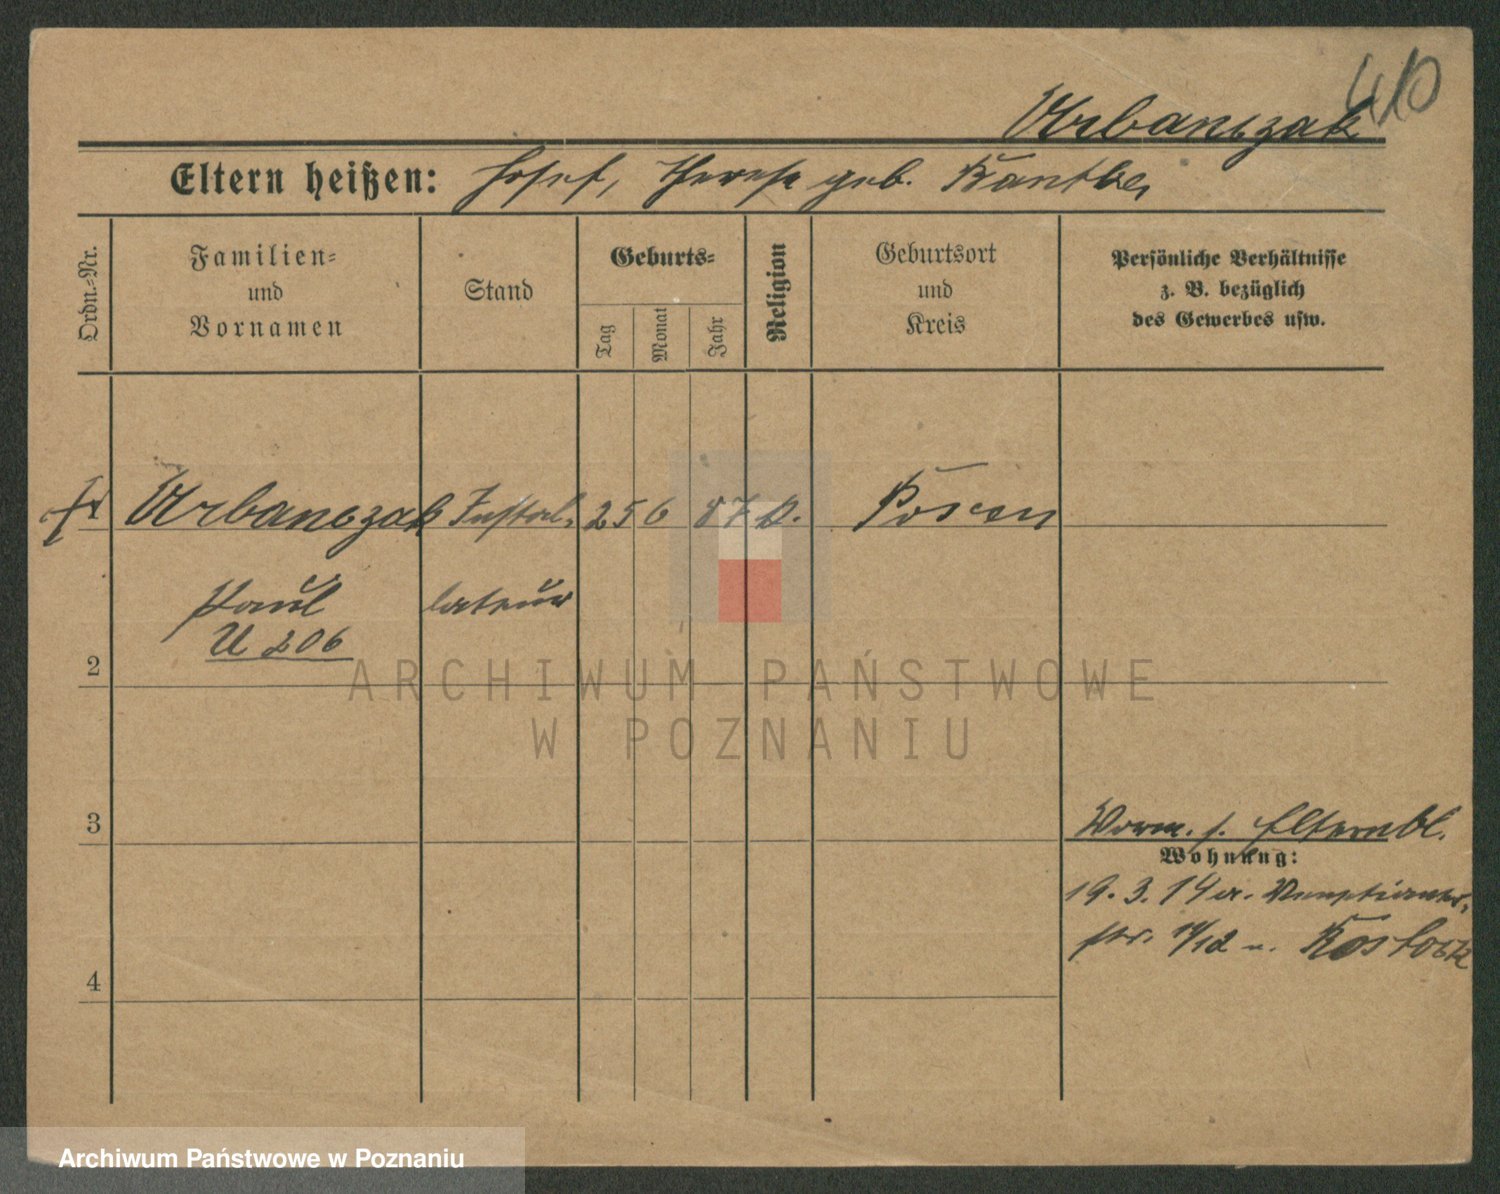 410
Urbanczak
Eltern heißen: Josef, Therese geb.
Ordn.-Nr.
Familien-
und
Vornamen
Stand
Geburts-
Tag
Monat
Jahr
Religion
Geburtsort
und
Kreis
Persönliche Verhältnisse
z. B. bezüglich
des Gewerbes usw.
1 Urbanczak Instal- 25 6 87 k. Posen
Paul lateur
U 206
2
3
Vorm. s. Elternbl.
Wohnung:
19. 3. 14 a.
str. 11/12 n. Rostock
4
ARCHIWUM PAŃSTWOWE
W POZNANIU
Archiwum Państwowe w Poznaniu